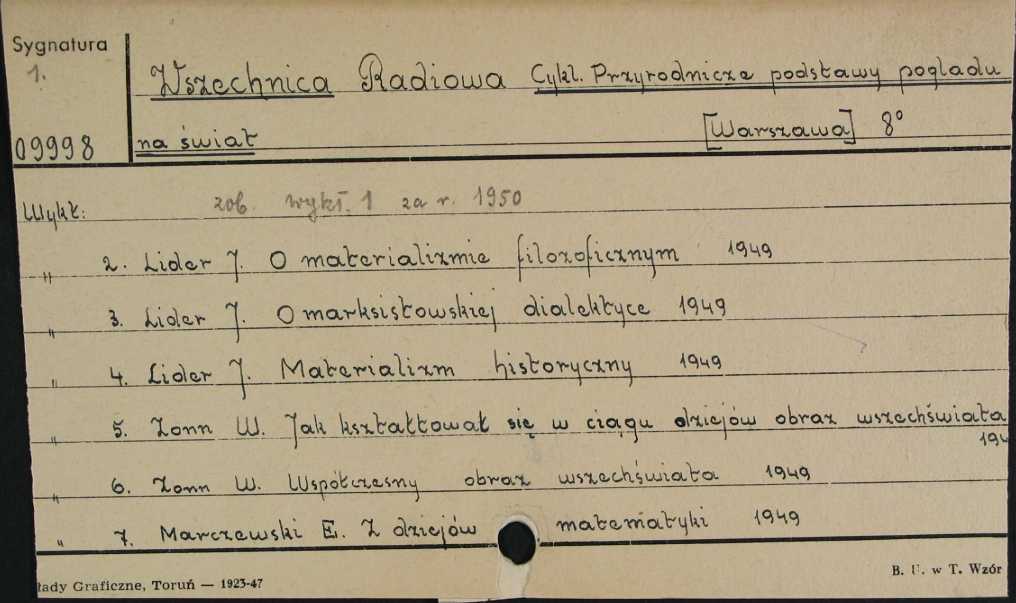 Sygnatura
1.
Wszechnica Radiowa Cykl. Przyrodnicze podstawy poglądu
na świat [Warszawa] 8°
09998
Wykł: zob. wykł. 1 za r. 1950
" 2. Lider J. O materializmie filozoficznym 1949
" 3. Lider J. O marksistowskiej dialektyce 1949
" 4. Lider J. Materializm historyczny 1949
" 5. Zonn W. Jak kształtował się w ciągu dziejów obraz wszechświata
194
" 6. Zonn W. Współczesny obraz wszechświata 1949
" 7. Marczewski E. Z dziejów matematyki 1949
łady Graficzne, Toruń — 1923-47
B. U. w T. Wzór